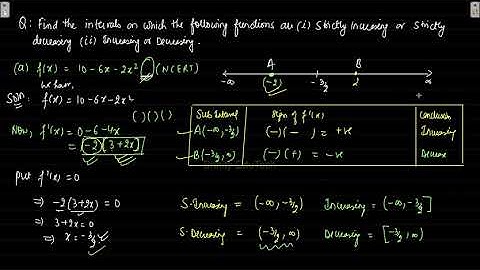 Q: Find the intervals on which the following functions are (i) Strictly Increasing or Strictly
decreasing (ii) Increasing or Decreasing.
(a) f(x) = 10-6x-2x² (NCERT)
We have,
Soln: f(x) = 10-6x-2x²
( )( )( )
Now, f'(x) = 0-6-4x
= (-2)[3+2x]
Put f'(x) = 0
⇒ -2(3+2x) = 0
⇒ 3+2x = 0
⇒ x = -3/2
A B
-∞ (-2) -3/2 2 ∞
Sub Interval Sign of f'(x) Conclusion
A(-∞, -3/2) (-)(-) = +ve Increasing
B(-3/2, ∞) (-)(+) = -ve Decrease
S-Increasing = (-∞, -3/2) Increasing = (-∞, -3/2]
S-Decreasing = (-3/2, ∞) Decreasing = [-3/2, ∞)